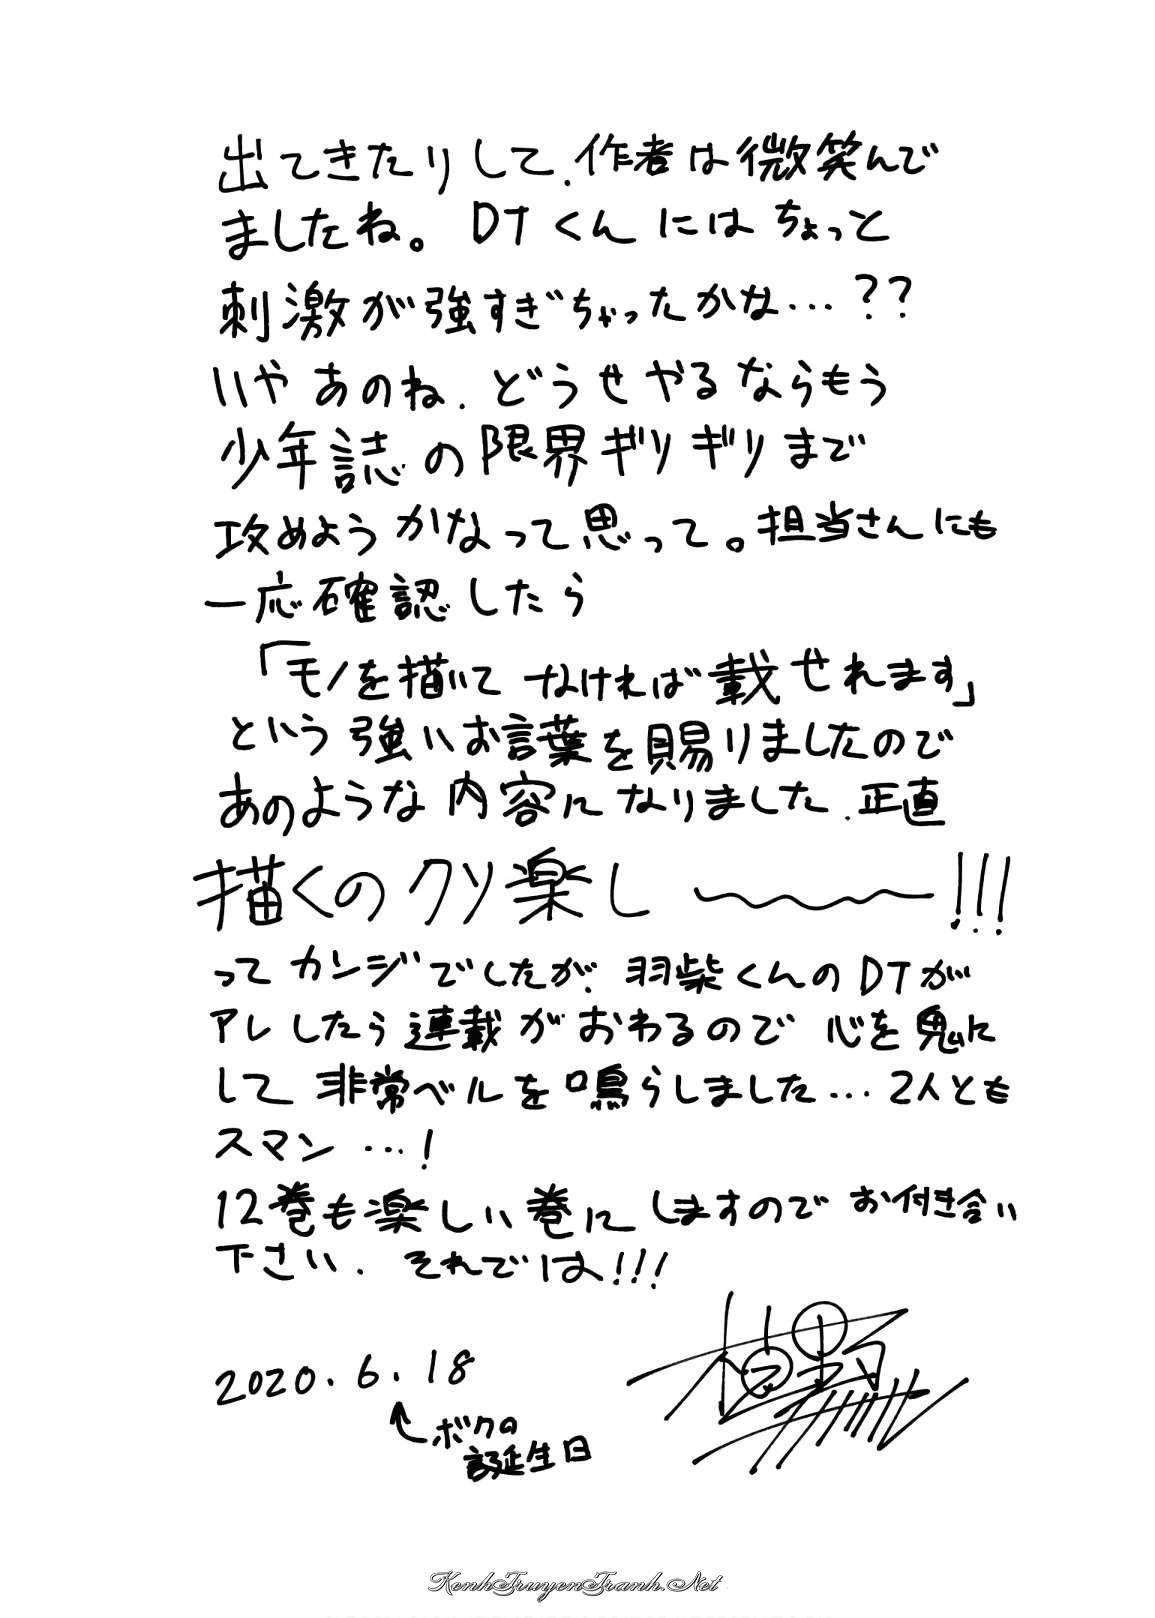 出てきたりして、作者は微笑んで
ましたね。DTくんにはちょっと
刺激が強すぎちゃったかな…??
いやあのね、どうせやるならもう
少年誌の限界ギリギリまで
攻めようかなって思って。担当さんにも
一応確認したら
「モノを描いてなければ載せれます」
という強いお言葉を賜りましたので
あのような内容になりました。正直
描くのクソ楽し〜〜〜!!!
ってカンジでしたが、羽柴くんのDTが
アレしたら連載がおわるので心を鬼に
して非常ベルを鳴らしました…2人とも
スマン…!
12巻も楽しい巻にしますのでお付き合い
下さい。それでは!!!
2020.6.18
ボクの
誕生日
KenhTruyenTranh.Net